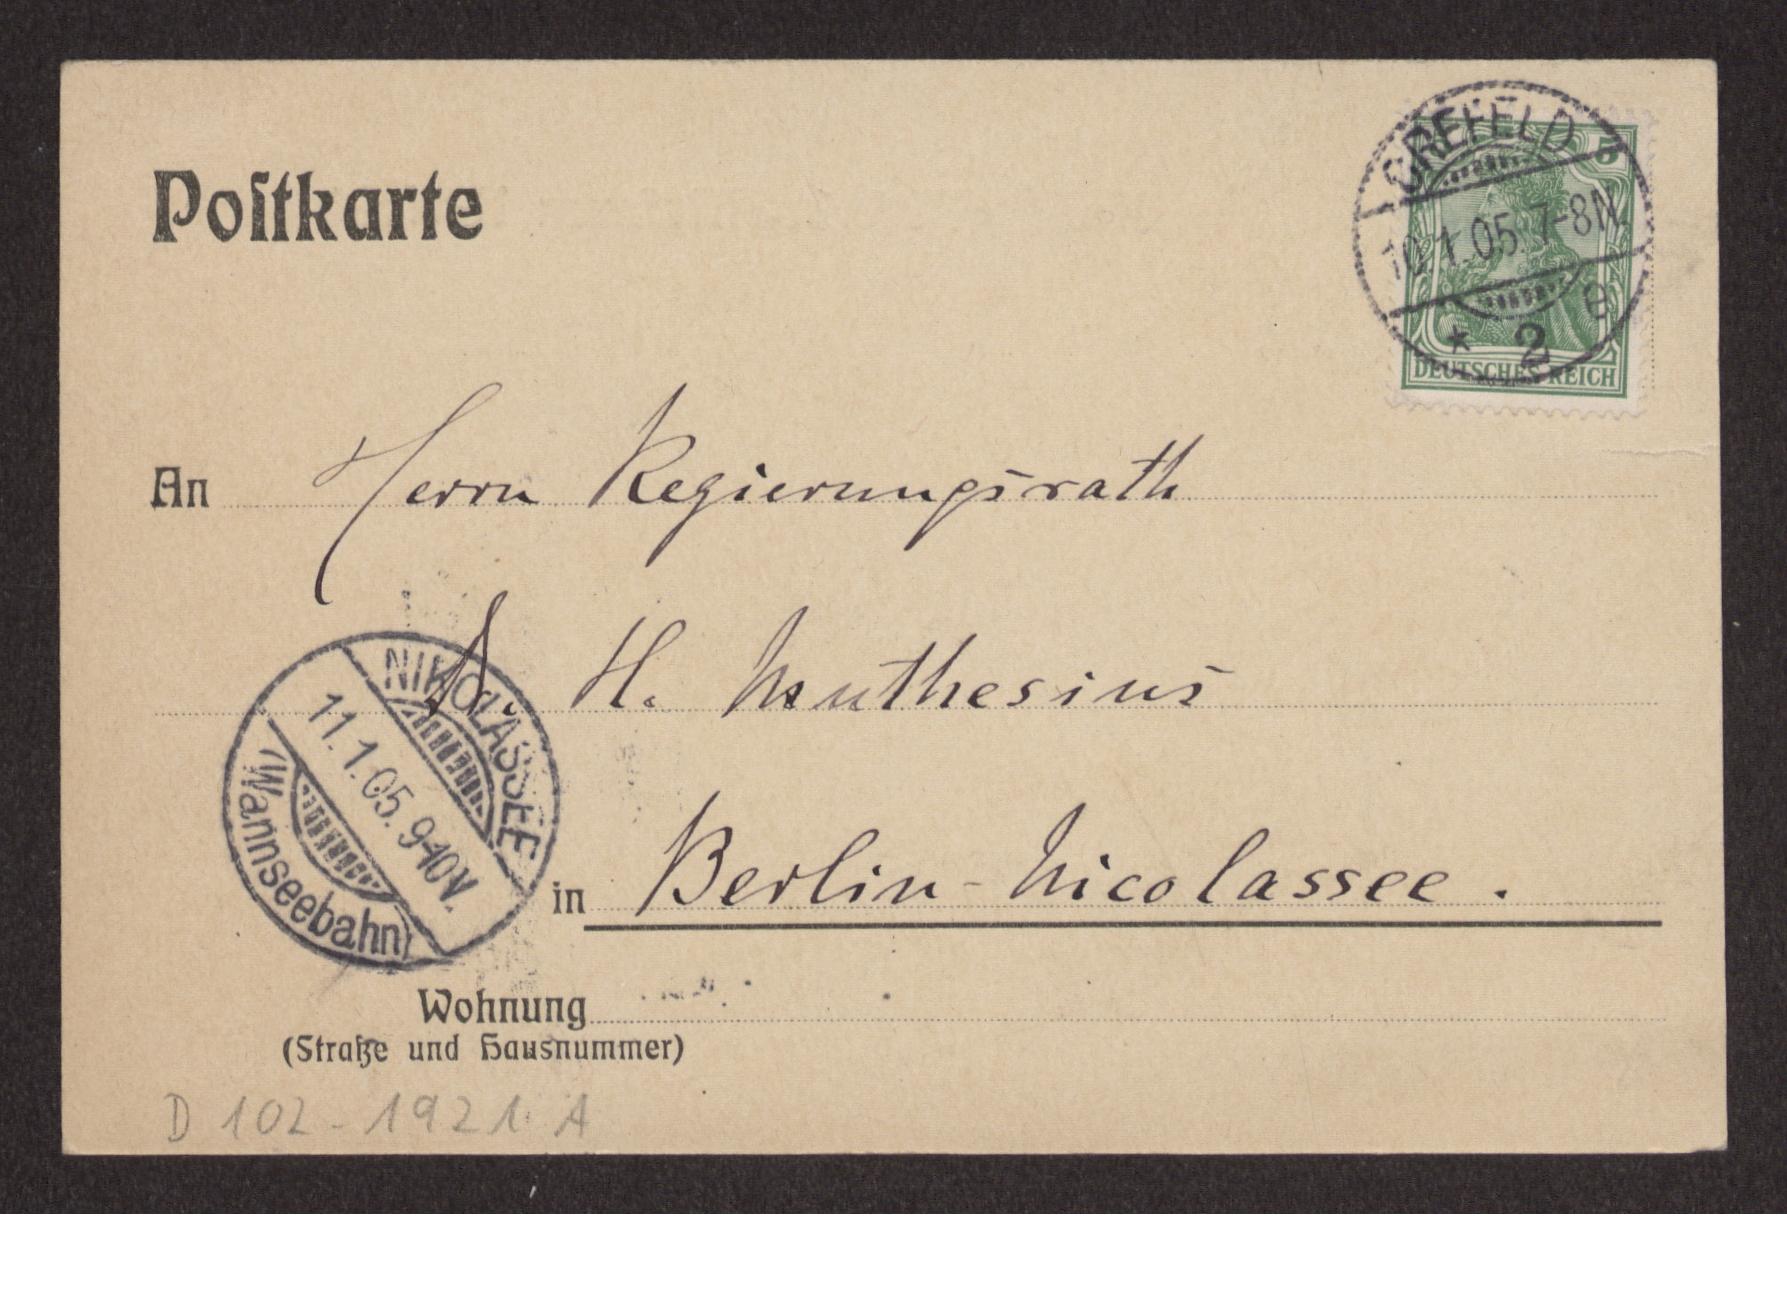 Postkarte
CREFELD
10.1.05.7-8N.
* 2 e
5
DEUTSCHES REICH
An Herrn Regierungsrath
Dr. H. Muthesius
NIKOLASSEE
11.1.05.9-10V.
(Wannseebahn)
in Berlin-Nicolassee.
Wohnung
(Straße und Hausnummer)
D 102-1921 A